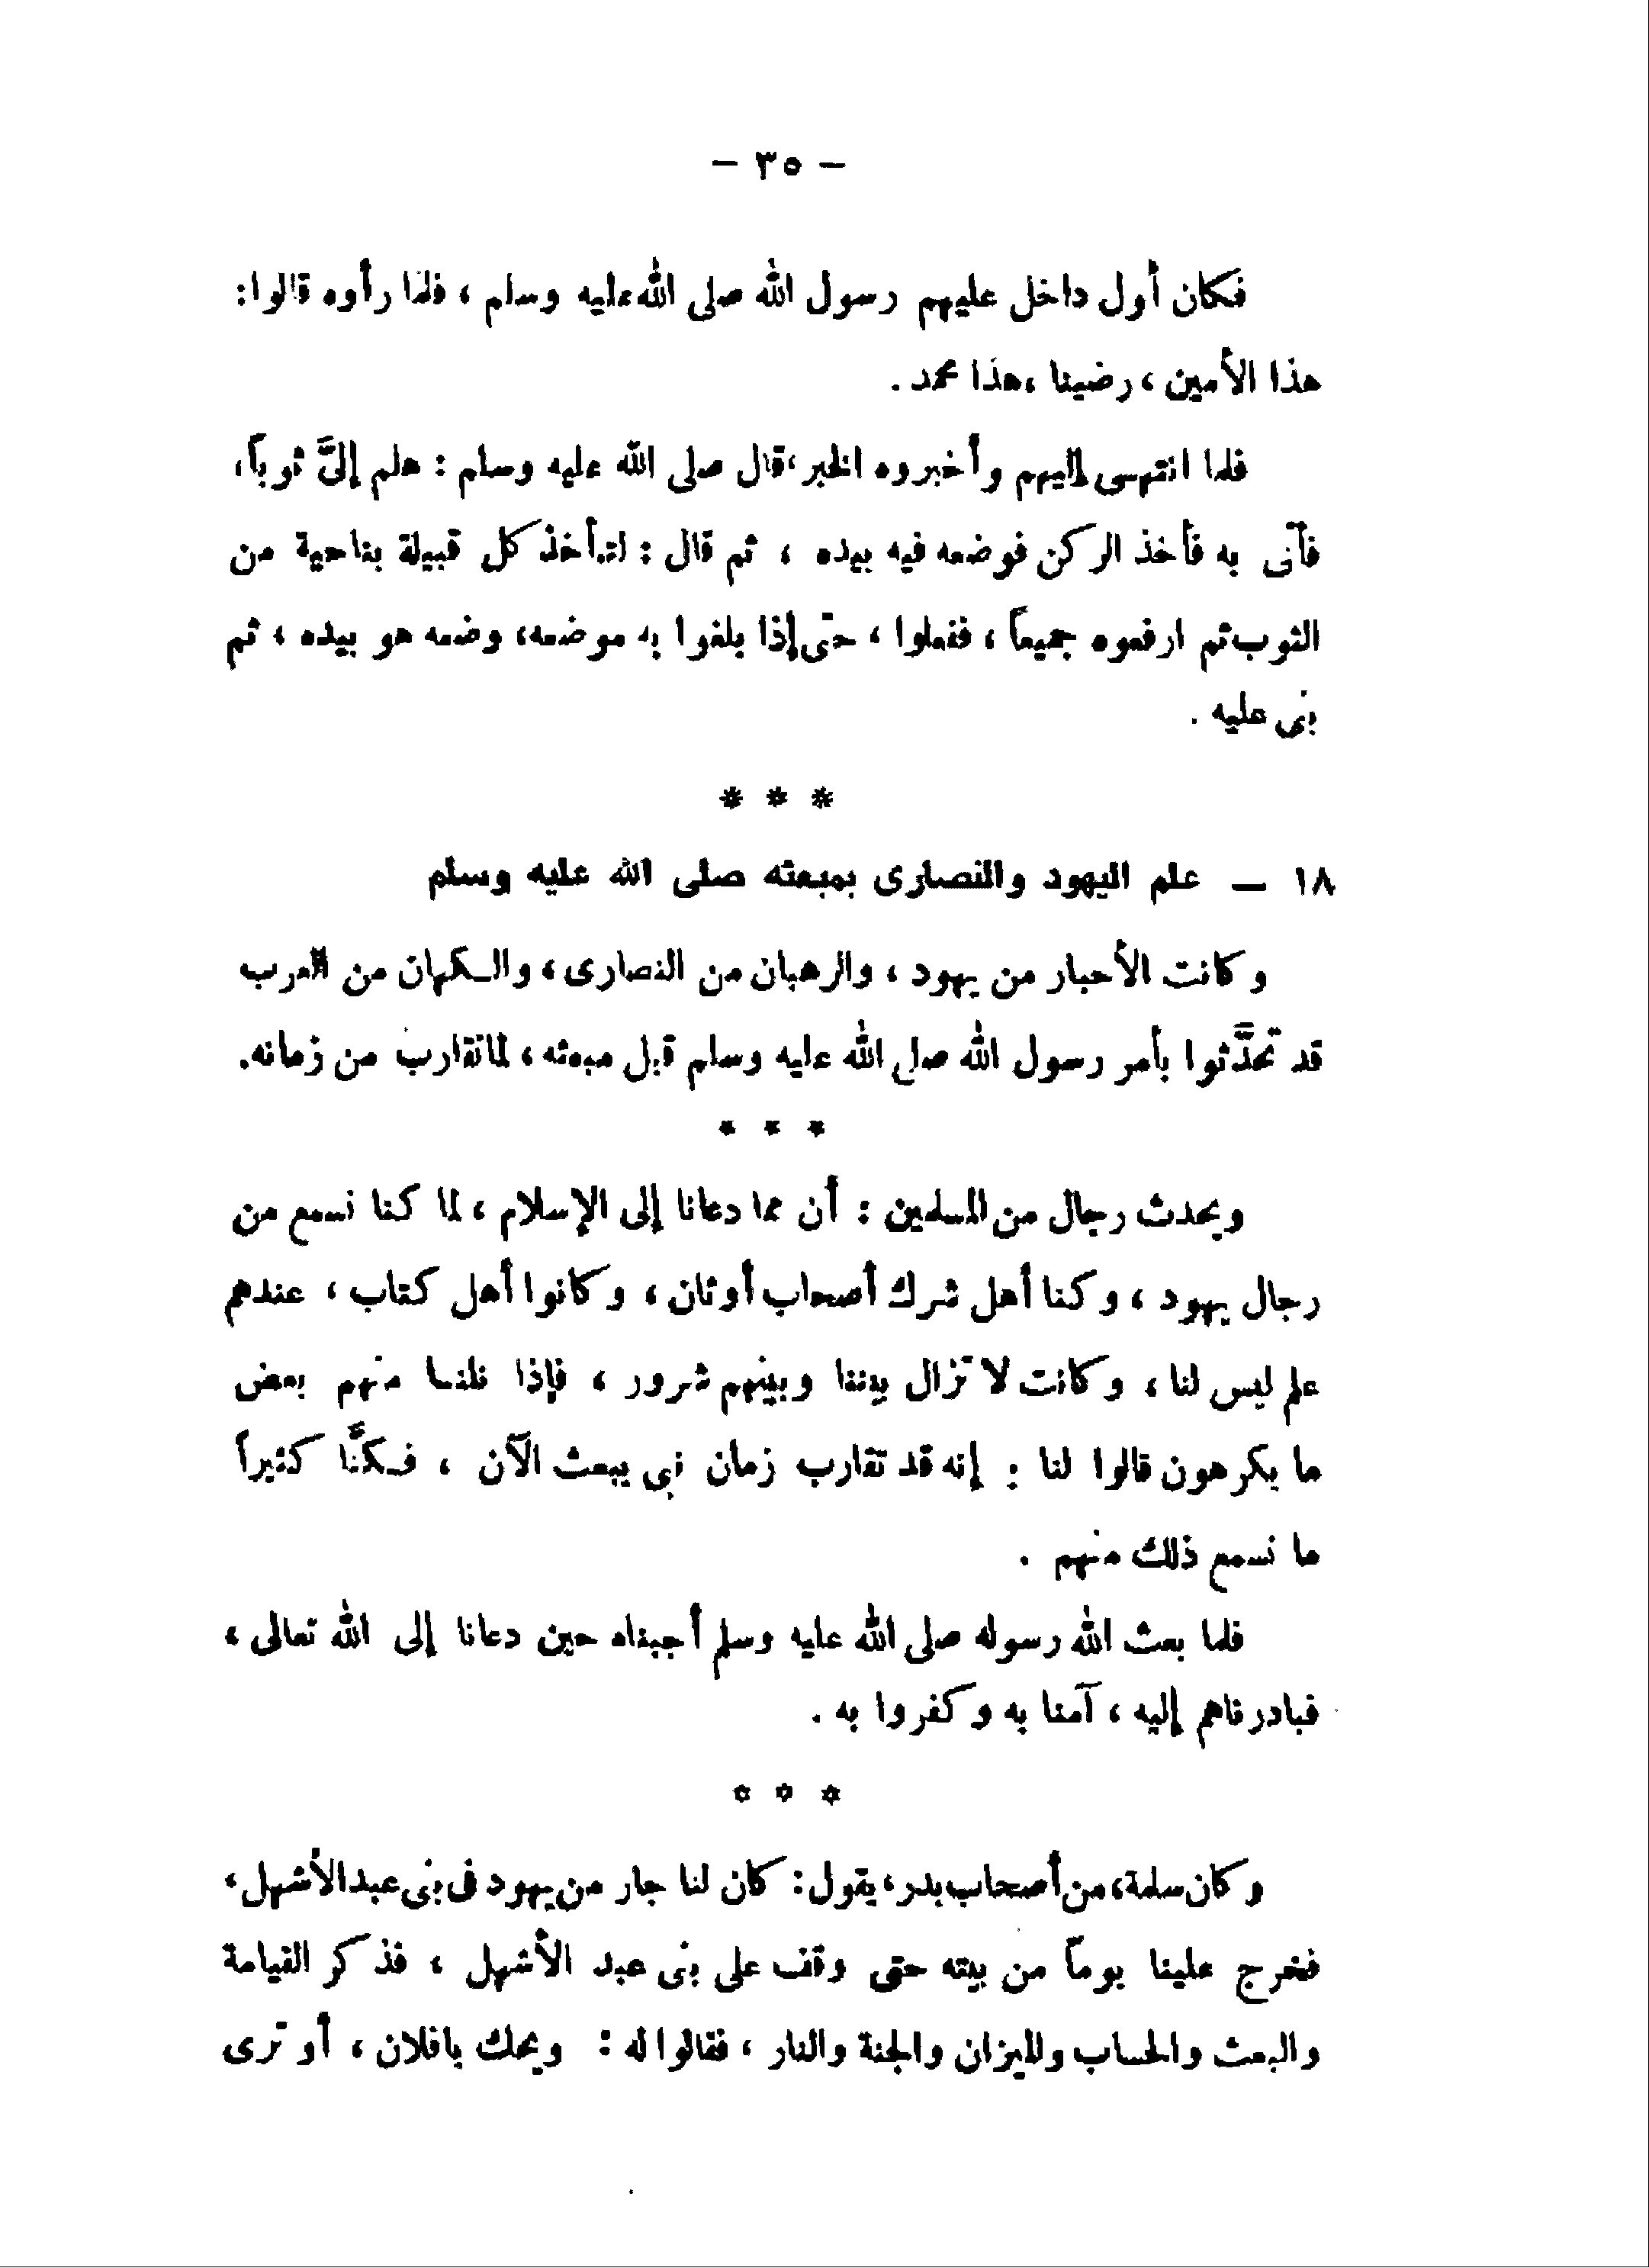 — ٣٥ —
فكان أول داخل عليهم رسول الله صلى الله عليه وسلم ، فلما رأوه قالوا:
هذا الأمين ، رضينا ، هذا محمد .
فلما انتهى إليهم وأخبروه الخبر ، قال صلى الله عليه وسلم : هلم إلىَّ ثوباً،
فأتى به فأخذ الركن فوضعه فيه بيده ، ثم قال : لتأخذ كل قبيلة بناحية من
الثوب ثم ارفعوه جميعاً ، ففعلوا ، حتى إذا بلغوا به موضعه، وضعه هو بيده ، ثم
بنى عليه .
* * *
١٨ — علم اليهود والنصارى بمبعثه صلى الله عليه وسلم
وكانت الأحبار من يهود ، والرهبان من النصارى ، والكهان من العرب
قد تحدَّثوا بأمر رسول الله صلى الله عليه وسلم قبل مبعثه ، لما تقارب من زمانه.
* * *
ويحدث رجال من المسلمين : أن مما دعانا إلى الإسلام ، لما كنا نسمع من
رجال يهود ، وكنا أهل شرك أصحاب أوثان ، وكانوا أهل كتاب ، عندهم
علم ليس لنا ، وكانت لا تزال بيننا وبينهم شرور ، فإذا نلنا منهم بعض
ما يكرهون قالوا لنا : إنه قد تقارب زمان نبى يبعث الآن ، فكنَّا كثيراً
ما نسمع ذلك منهم .
فلما بعث الله رسوله صلى الله عليه وسلم أجبناه حين دعانا إلى الله تعالى ،
فبادرناهم إليه ، آمنا به وكفروا به .
* * *
وكان سلمة ، من أصحاب بدر ، يقول : كان لنا جار من يهود فى بنى عبد الأشهل ،
فخرج علينا يوماً من بيته حتى وقف على بنى عبد الأشهل ، فذكر القيامة
والبعث والحساب والميزان والجنة والنار ، فقالوا له : ويحك يا فلان ، أو ترى